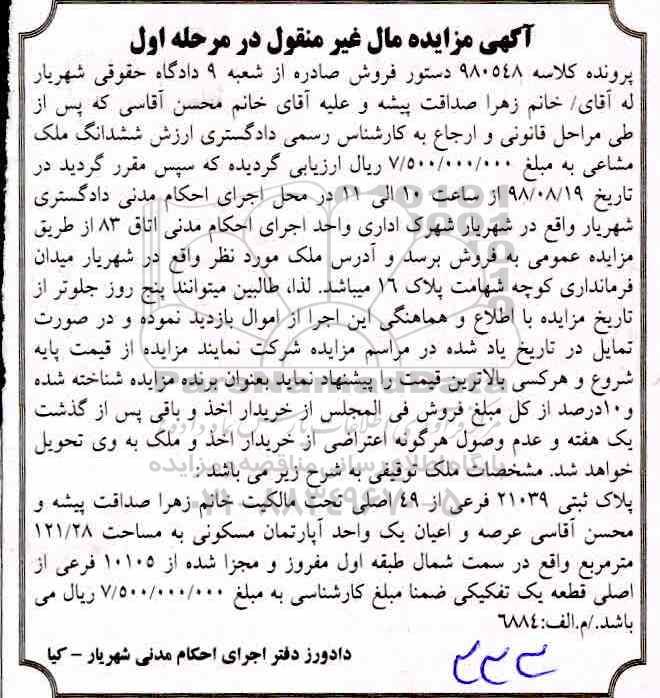 آگهی مزایده مال غیر منقول در مرحله اول
پرونده کلاسه ۹۸۰۵۴۸ دستور فروش صادره از شعبه ۹ دادگاه حقوقی شهریار
له آقای/ خانم زهرا صداقت پیشه و علیه آقای خانم محسن آقاسی که پس از
طی مراحل قانونی و ارجاع به کارشناس رسمی دادگستری ارزش ششدانگ ملک
مشاعی به مبلغ ۷/۵۰۰/۰۰۰/۰۰۰ ریال ارزیابی گردیده که سپس مقرر گردید در
تاریخ ۹۸/۰۸/۱۹ از ساعت ۱۰ الی ۱۱ در محل اجرای احکام مدنی دادگستری
شهریار واقع در شهریار شهرک اداری واحد اجرای احکام مدنی اتاق ۸۳ از طریق
مزایده عمومی به فروش برسد و آدرس ملک مورد نظر واقع در شهریار میدان
فرمانداری کوچه شهامت پلاک ۱۶ میباشد. لذا، طالبین میتوانند پنج روز جلوتر از
تاریخ مزایده با اطلاع و هماهنگی این اجرا از اموال بازدید نموده و در صورت
تمایل در تاریخ یاد شده در مراسم مزایده شرکت نمایند مزایده از قیمت پایه
شروع و هرکسی بالاترین قیمت را پیشنهاد نماید بعنوان برنده مزایده شناخته شده
و۱۰درصد از کل مبلغ فروش فی المجلس از خریدار اخذ و باقی پس از گذشت
یک هفته و عدم وصول هرگونه اعتراضی از خریدار اخذ و ملک به وی تحویل
خواهد شد. مشخصات ملک توقیفی به شرح زیر می باشد :
پلاک ثبتی ۲۱۰۳۹ فرعی از ۴۹ اصلی تحت مالکیت خانم زهرا صداقت پیشه و
محسن آقاسی عرصه و اعیان یک واحد آپارتمان مسکونی به مساحت ۱۲۱/۲۸
مترمربع واقع در سمت شمال طبقه اول مفروز و مجزا شده از ۱۰۱۰۵ فرعی از
اصلی قطعه یک تفکیکی ضمنا مبلغ کارشناسی به مبلغ ۷/۵۰۰/۰۰۰/۰۰۰ ریال می
باشد./م.الف:۶۸۸۴
دادورز دفتر اجرای احکام مدنی شهریار - کیا
ParsNamadData
پایگاه اطلاع رسانی مناقصه و مزایده
۰۲۱-۸۸۳۴۹۶۷۰-۵